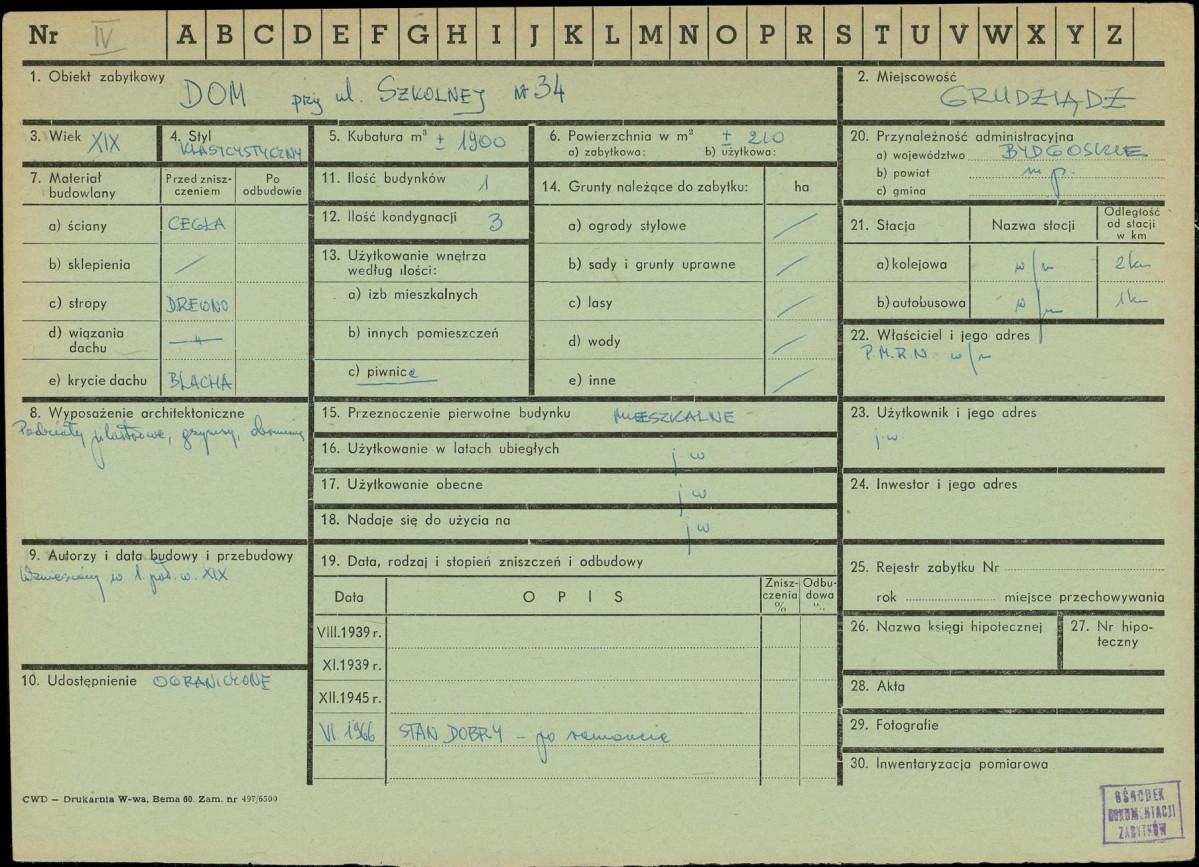 Nr IV A B C D E F G H I J K L M N O P R S T U V W X Y Z
1. Obiekt zabytkowy
DOM przy ul. SZKOLNEJ Nr 34
2. Miejscowość
GRUDZIĄDZ
3. Wiek XIX
4. Styl
KLASYCYSTYCZNY
5. Kubatura m³ ± 1900
6. Powierzchnia w m² ± 210
a) zabytkowa: b) użytkowa:
20. Przynależność administracyjna
a) województwo BYDGOSKIE
b) powiat m p.
c) gmina
7. Materiał budowlany
Przed znisz-
czeniem
Po
odbudowie
a) ściany CEGŁA
b) sklepienia /
c) stropy DREWNO
d) wiązania
dachu —"—
e) krycie dachu BLACHA
11. Ilość budynków 1
12. Ilość kondygnacji 3
13. Użytkowanie wnętrza
według ilości:
a) izb mieszkalnych
b) innych pomieszczeń
c) piwnice
14. Grunty należące do zabytku: ha
a) ogrody stylowe /
b) sady i grunty uprawne /
c) lasy /
d) wody /
e) inne /
21. Stacja Nazwa stacji
Odległość
od stacji
w km
a) kolejowa w/m 2 km
b) autobusowa w/m 1 km
22. Właściciel i jego adres
P.M.R.N. w/m
8. Wyposażenie architektoniczne
Podziały pilastrowe, gzymsy,
15. Przeznaczenie pierwotne budynku MIESZKALNE
16. Użytkowanie w latach ubiegłych j w
17. Użytkowanie obecne j w.
18. Nadaje się do użycia na j w
23. Użytkownik i jego adres
j.w.
24. Inwestor i jego adres
9. Autorzy i data budowy i przebudowy
Wzniesiony w 1. poł. w. XIX
19. Data, rodzaj i stopień zniszczeń i odbudowy
Data OPIS
Znisz-
czenia
%
Odbu-
dowa
%
VIII.1939 r.
XI.1939 r.
XII.1945 r.
VI 1966 STAN DOBRY – po remoncie
25. Rejestr zabytku Nr
rok miejsce przechowywania
26. Nazwa księgi hipotecznej
27. Nr hipo-
teczny
10. Udostępnienie OGRANICZONE
28. Akta
29. Fotografie
30. Inwentaryzacja pomiarowa
CWD – Drukarnia W-wa, Bema 60. Zam. nr 497/6500
OŚRODEK
DOKUMENTACJI
ZABYTKÓW